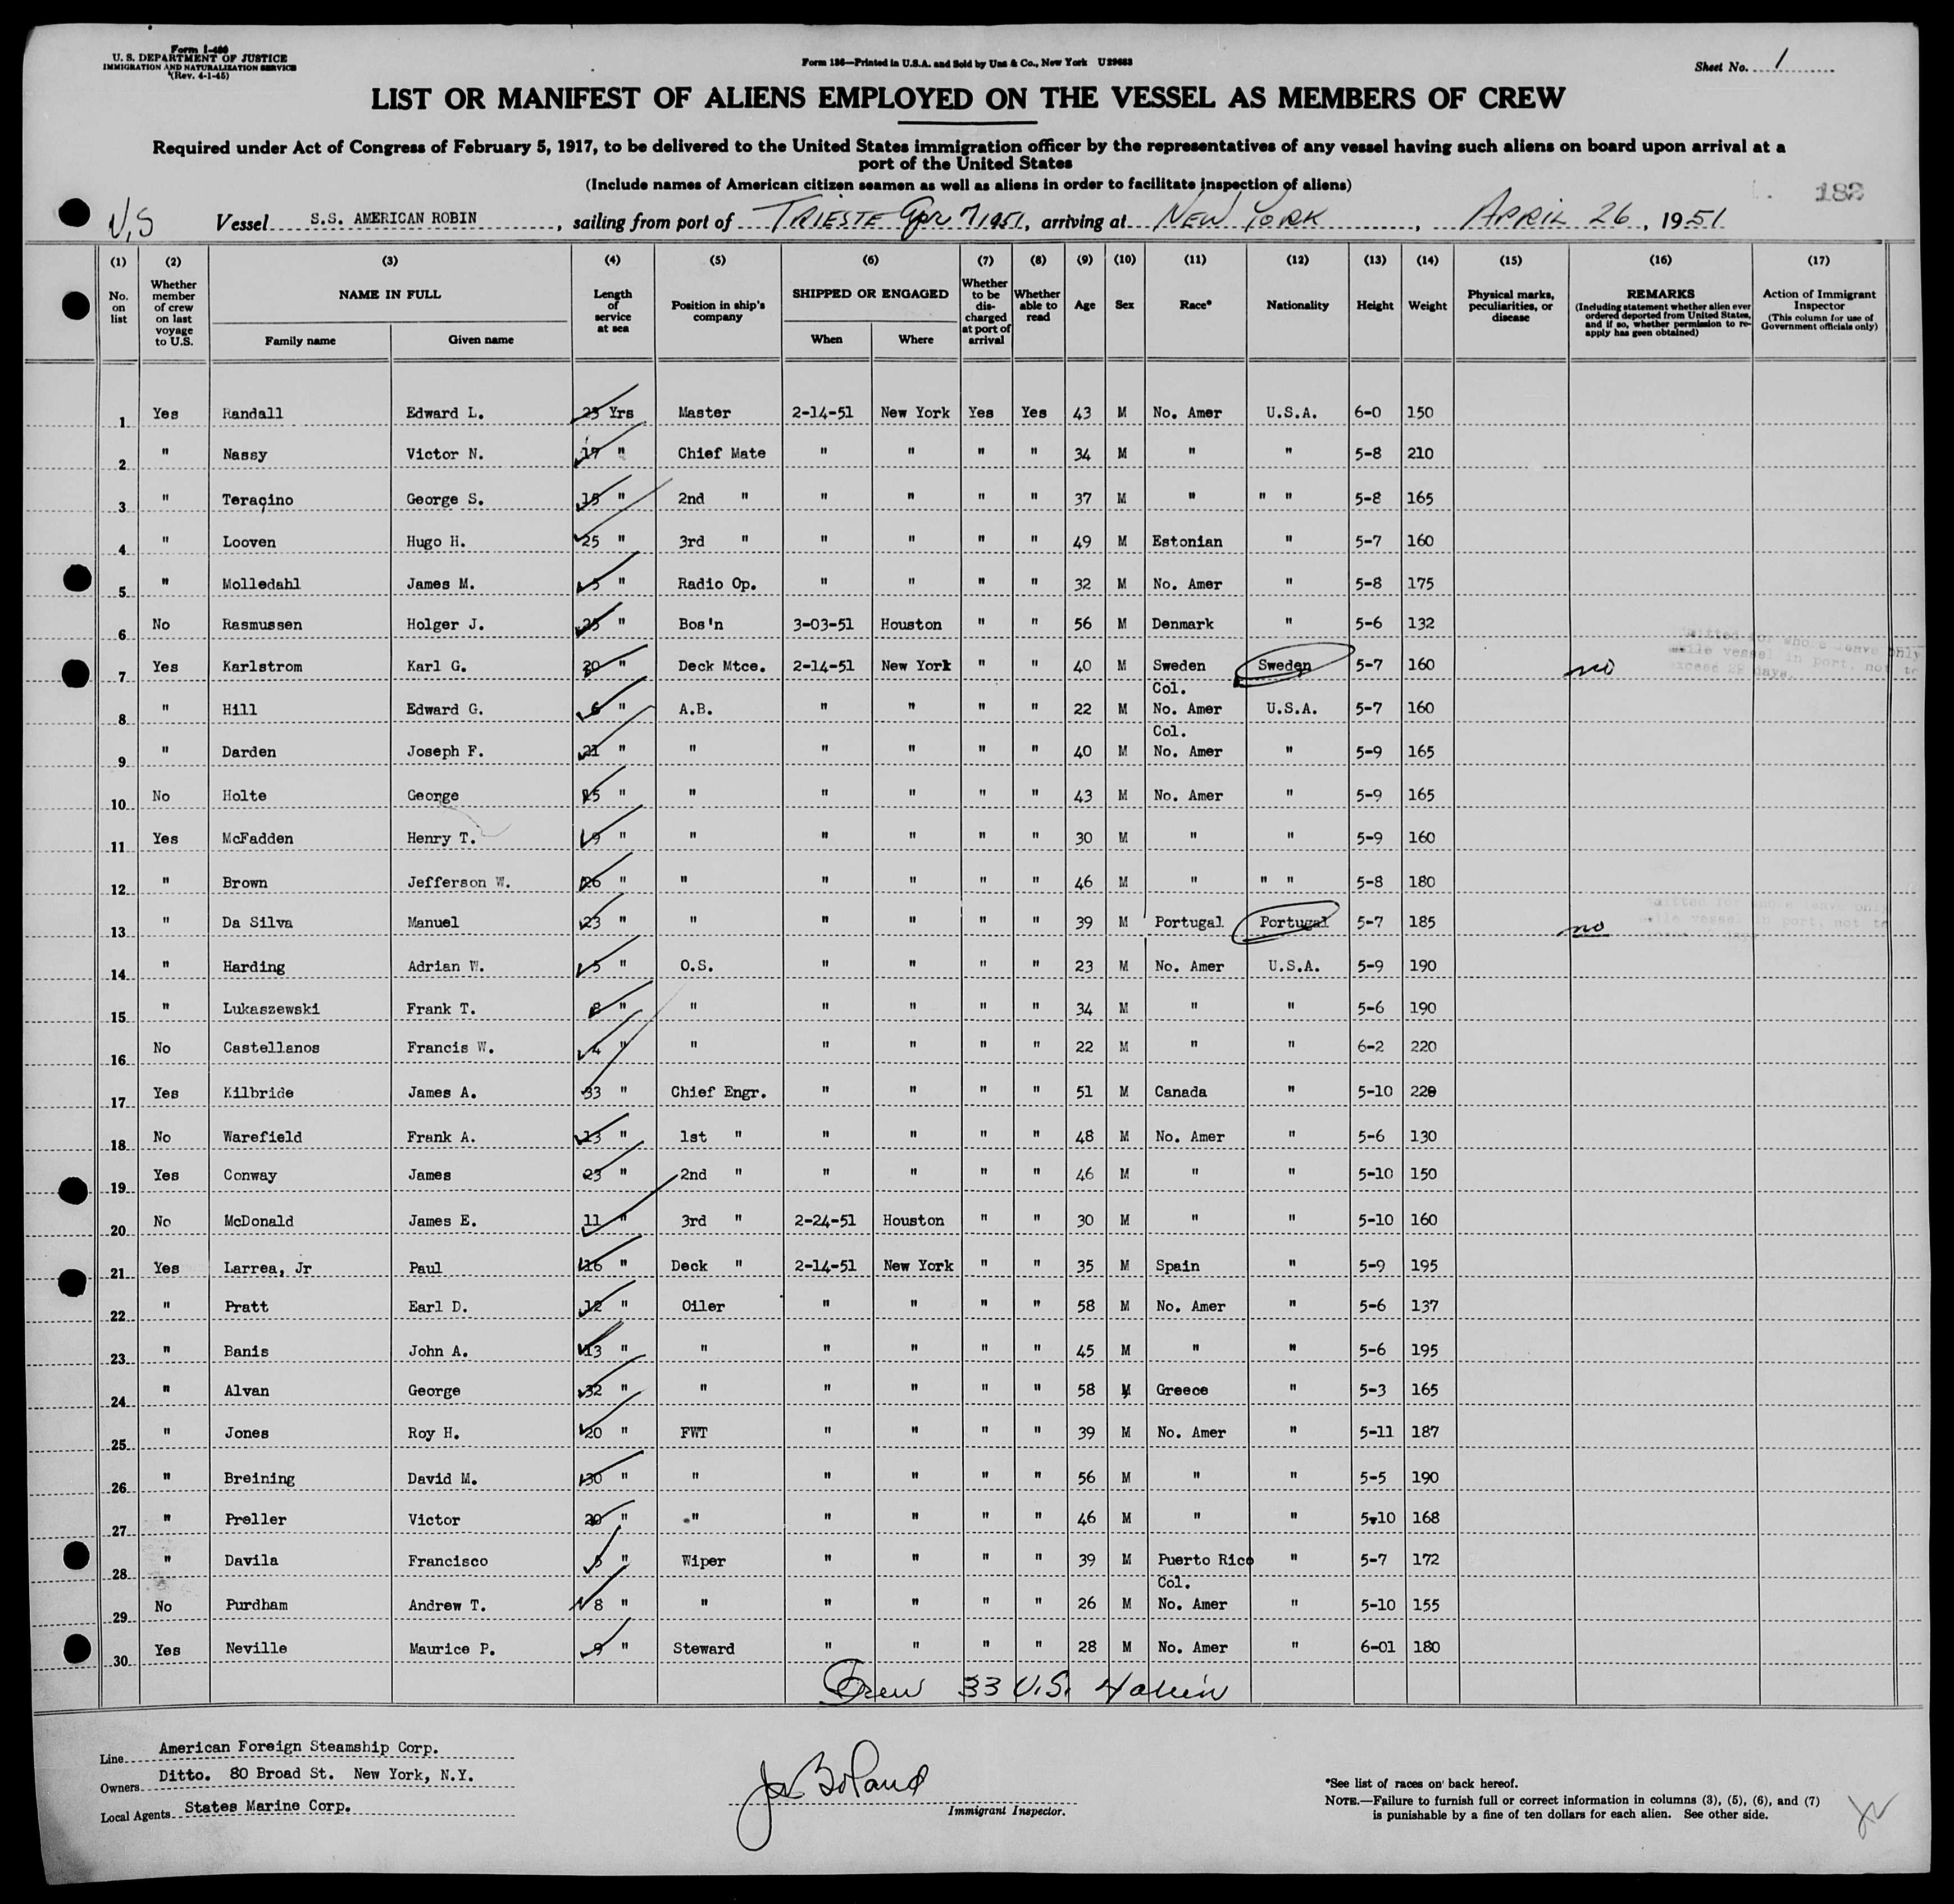 Form I-480
U. S. DEPARTMENT OF JUSTICE
IMMIGRATION AND NATURALIZATION SERVICE
(Rev. 4-1-45)
Form 136—Printed in U.S.A. and Sold by Unz & Co., New York U29683
Sheet No. 1
LIST OR MANIFEST OF ALIENS EMPLOYED ON THE VESSEL AS MEMBERS OF CREW
Required under Act of Congress of February 5, 1917, to be delivered to the United States immigration officer by the representatives of any vessel having such aliens on board upon arrival at a
port of the United States
(Include names of American citizen seamen as well as aliens in order to facilitate inspection of aliens)
182
U,S Vessel S.S. AMERICAN ROBIN, sailing from port of TRIESTE Apr 7 1951, arriving at NEW YORK, APRIL 26, 1951
(1) (2) (3) (4) (5) (6) (7) (8) (9) (10) (11) (12) (13) (14) (15) (16) (17)
No. on list
Whether member of crew on last voyage to U.S.
NAME IN FULL
Family name Given name
Length of service at sea
Position in ship's company
SHIPPED OR ENGAGED
When Where
Whether to be discharged at port of arrival
Whether able to read
Age Sex Race* Nationality Height Weight
Physical marks, peculiarities, or disease
REMARKS
(Including statement whether alien ever ordered deported from United States, and if so, whether permission to re-apply has geen obtained)
Action of Immigrant Inspector
(This column for use of Government officials only)
1 Yes Randall Edward L. 23 Yrs Master 2-14-51 New York Yes Yes 43 M No. Amer U.S.A. 6-0 150
2 " Nassy Victor N. 17 " Chief Mate " " " " 34 M " " 5-8 210
3 " Teraçino George S. 15 " 2nd " " " " " 37 M " " " 5-8 165
4 " Looven Hugo H. 25 " 3rd " " " " " 49 M Estonian " 5-7 160
5 " Molledahl James M. 5 " Radio Op. " " " " 32 M No. Amer " 5-8 175
6 No Rasmussen Holger J. 25 " Bos'n 3-03-51 Houston " " 56 M Denmark " 5-6 132
7 Yes Karlstrom Karl G. 20 " Deck Mtce. 2-14-51 New York " " 40 M Sweden Sweden 5-7 160 no
Col.
8 " Hill Edward G. 6 " A.B. " " " " 22 M No. Amer U.S.A. 5-7 160
Col.
9 " Darden Joseph F. 21 " " " " " " 40 M No. Amer " 5-9 165
10 No Holte George 25 " " " " " " 43 M No. Amer " 5-9 165
11 Yes McFadden Henry T. 9 " " " " " " 30 M " " 5-9 160
12 " Brown Jefferson W. 26 " " " " " " 46 M " " " 5-8 180
13 " Da Silva Manuel 23 " " " " " " 39 M Portugal Portugal 5-7 185 no
14 " Harding Adrian W. 5 " O.S. " " " " 23 M No. Amer U.S.A. 5-9 190
15 " Lukaszewski Frank T. 8 " " " " " " 34 M " " 5-6 190
16 No Castellanos Francis W. 4 " " " " " " 22 M " " 6-2 220
17 Yes Kilbride James A. 33 " Chief Engr. " " " " 51 M Canada " 5-10 220
18 No Warefield Frank A. 13 " 1st " " " " " 48 M No. Amer " 5-6 130
19 Yes Conway James 23 " 2nd " " " " " 46 M " " 5-10 150
20 No McDonald James E. 11 " 3rd " 2-24-51 Houston " " 30 M " " 5-10 160
21 Yes Larrea, Jr Paul 16 " Deck " 2-14-51 New York " " 35 M Spain " 5-9 195
22 " Pratt Earl D. 12 " Oiler " " " " 58 M No. Amer " 5-6 137
23 " Banis John A. 13 " " " " " " 45 M " " 5-6 195
24 " Alvan George 32 " " " " " " 58 M Greece " 5-3 165
25 " Jones Roy H. 20 " FWT " " " " 39 M No. Amer " 5-11 187
26 " Breining David M. 30 " " " " " " 56 M " " 5-5 190
27 " Preller Victor 20 " " " " " " 46 M " " 5-10 168
28 " Davila Francisco 5 " Wiper " " " " 39 M Puerto Rico " 5-7 172
Col.
29 No Purdham Andrew T. 8 " " " " " " 26 M No. Amer " 5-10 155
30 Yes Neville Maurice P. 9 " Steward " " " " 28 M No. Amer " 6-01 180
Crew 33 U.S. 4 alien
Line American Foreign Steamship Corp.
Owners Ditto. 80 Broad St. New York, N.Y.
Local Agents States Marine Corp.
Jos Boland
Immigrant Inspector.
*See list of races on back hereof.
NOTE.—Failure to furnish full or correct information in columns (3), (5), (6), and (7)
is punishable by a fine of ten dollars for each alien. See other side.